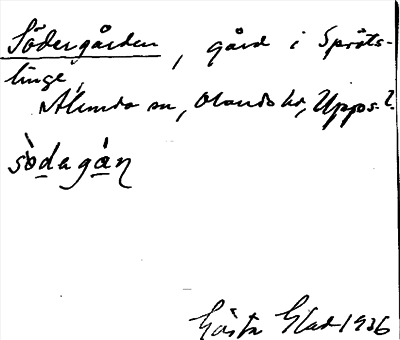 Södergården, gård i Spröts-
linge,
Alunda sn, Olands hd, Upps. l.
södagán
Gösta Glad 1936